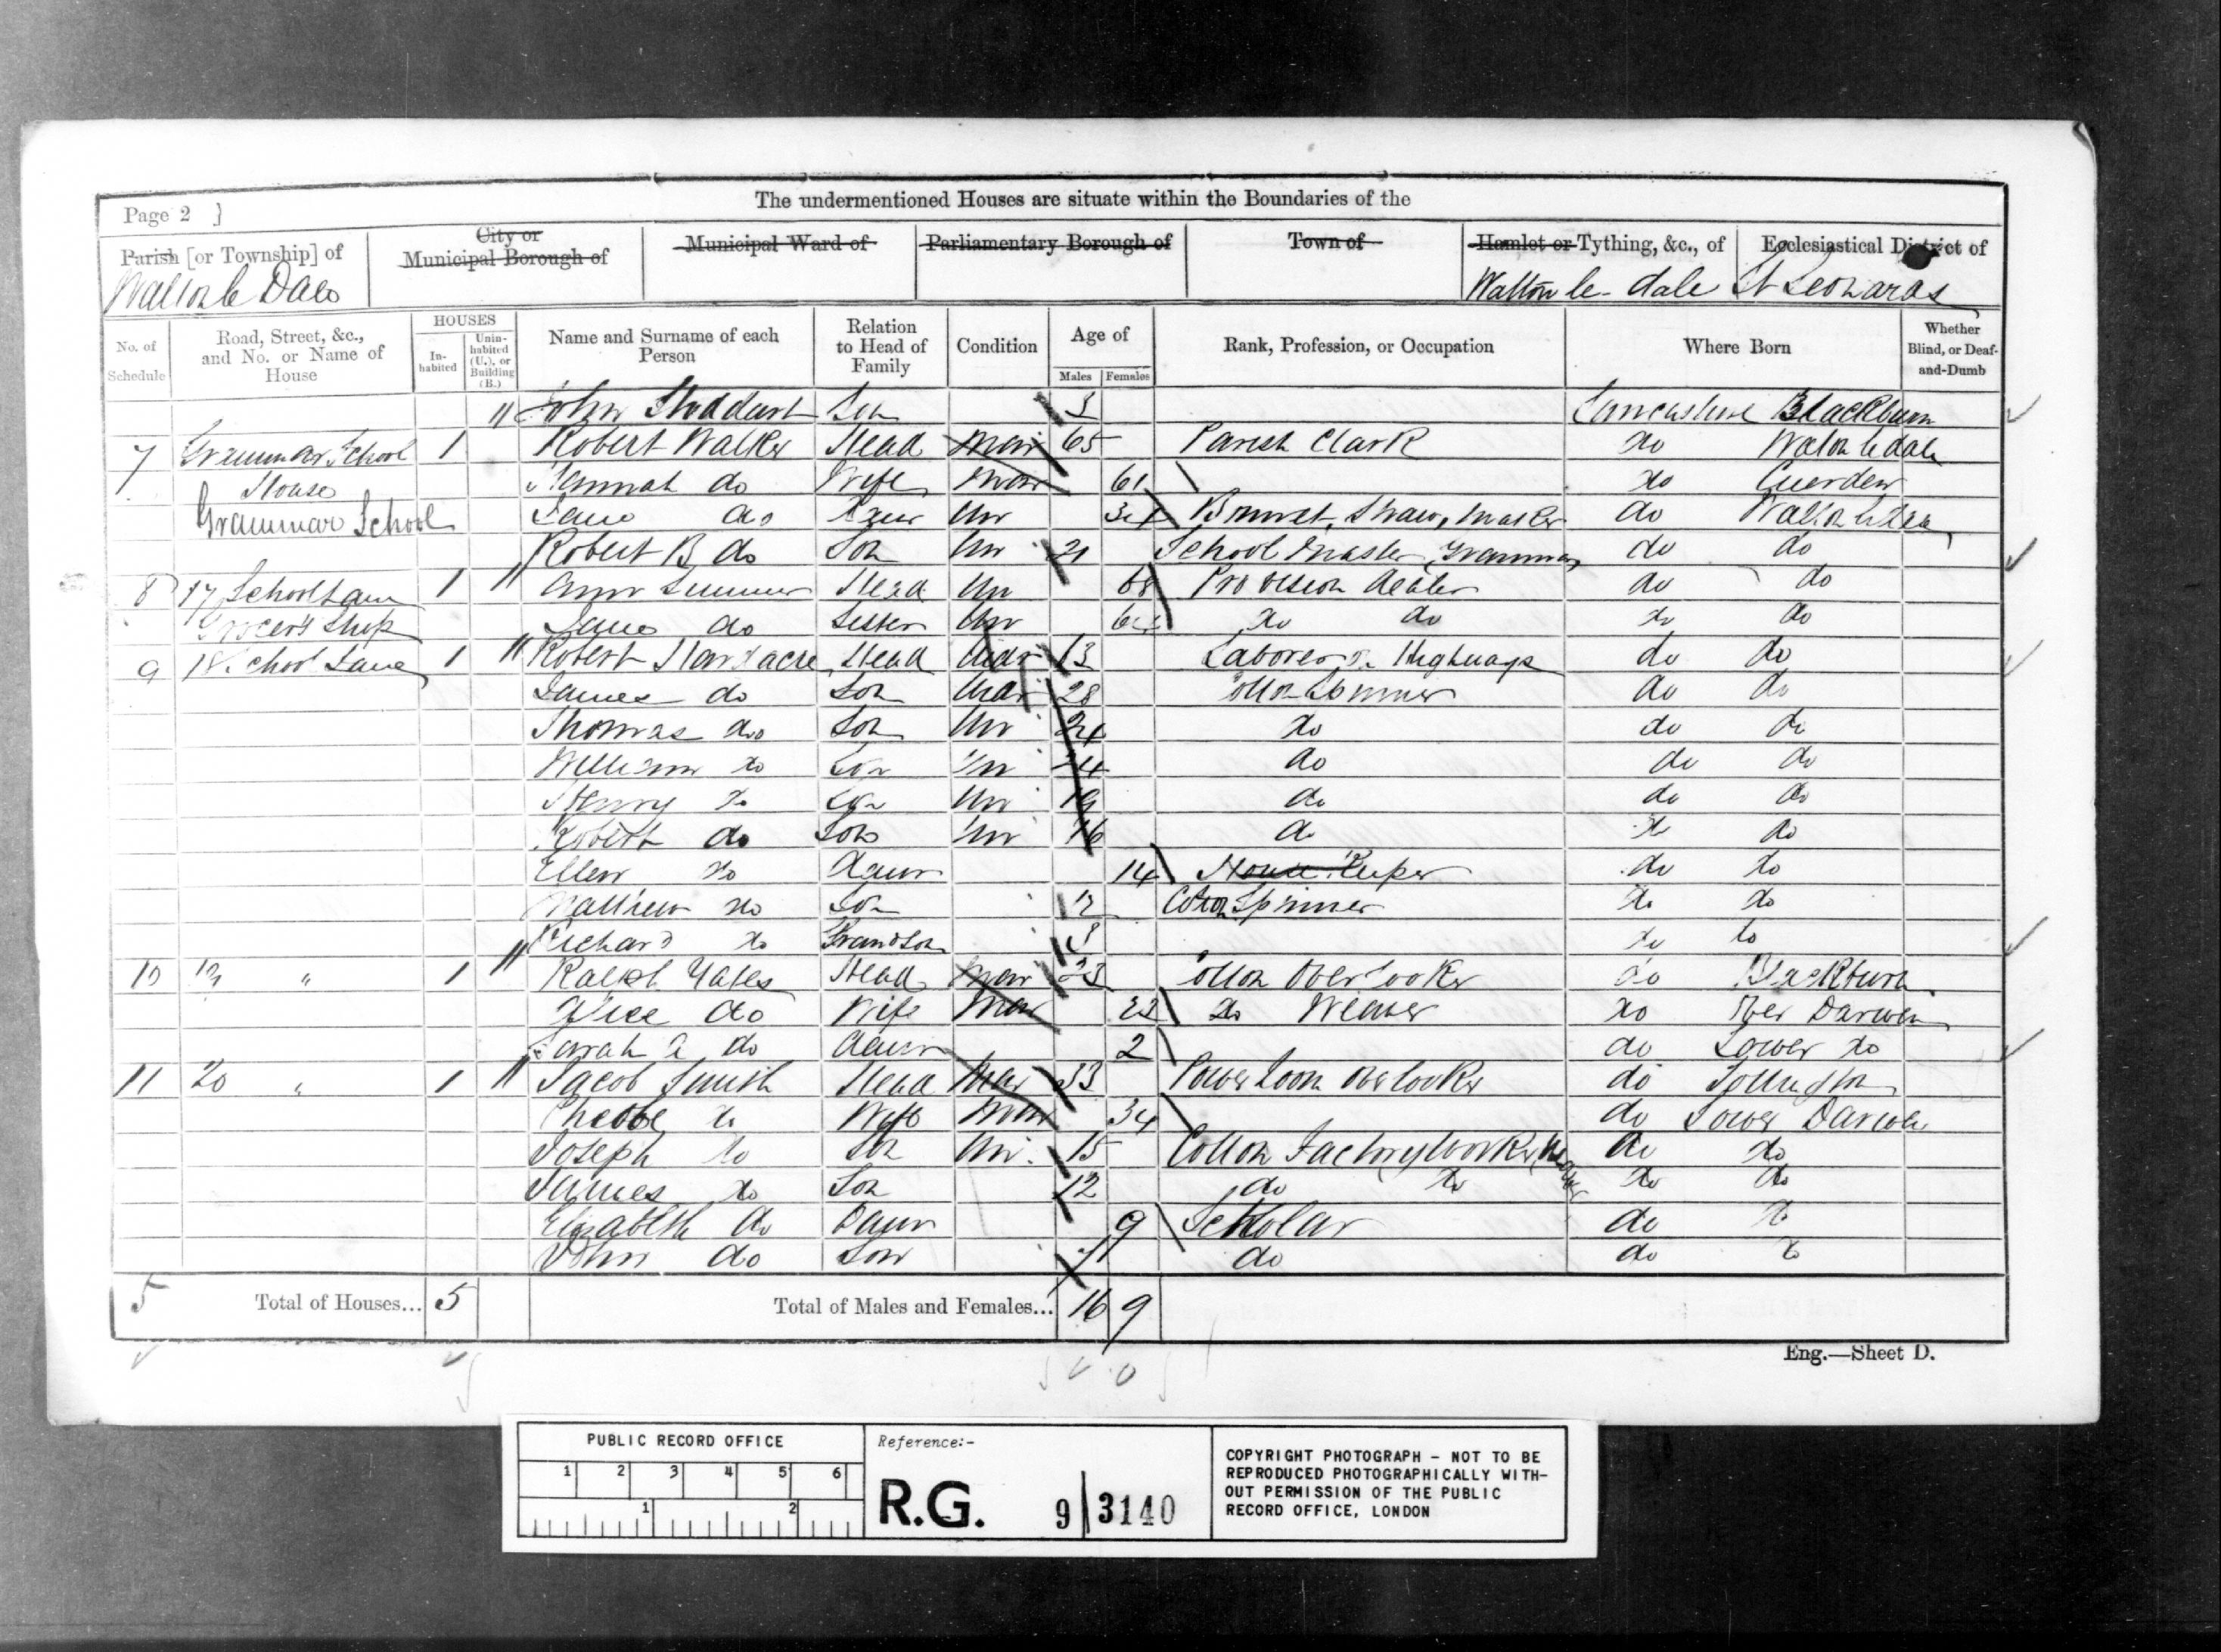 The undermentioned Houses are situate within the Boundaries of the
Page 2 }
Parish [or Township] of
City or Municipal Borough of
Municipal Ward of
Parliamentary Borough of
Town of
Hamlet or Tything, &c., of
Ecclesiastical District of
Walton le Dale
Walton le-dale
St Leonards
No. of Schedule
Road, Street, &c., and No. or Name of House
HOUSES
In-habited
Unin-habited (U.), or Building (B.)
Name and Surname of each Person
Relation to Head of Family
Condition
Age of
Males
Females
Rank, Profession, or Occupation
Where Born
Whether Blind, or Deaf-and-Dumb
John Son 3 Lancashire Blackburn
7 Grammar School 1 Robert Walker Head Mar 65 Parish Clark do Walton le dale
House Hannah do Wife Mar 61 do Cuerden
Grammar School Jane do Daur Un Bonnet, Straw, Maker do Walton le Dale
Robert B do Son Un 21 School Master, Grammar do do
8 17 School Lane 1 Ann Head Un 68 Provision dealer do do
Grocers Shop Jane do Sister Un do do do do
9 18 School Lane 1 Robert Hardacre Head Laborer on Highways do do
James do Son 28 Cotton Spinner do do
Thomas do Son Un 24 do do do
William do Son Un do do do
Henry do Son Un 19 do do do
Robert do Son Un 16 do do do
Ellen do Daur 14 House Keeper do do
Matthew do Son 12 Cotton Spinner do do
Richard do Grandson 3 do do
10 19 " 1 Ralph Yates Head Mar 23 Cotton Overlooker do Blackburn
Alice do Wife Mar 23 do Weaver do Over Darwen
Sarah A do Daur 2 do Lower do
11 20 " 1 Jacob Smith Head Mar 33 Power Loom Overlooker do Tottington
Phebbe do Wife Mar 34 do Lower Darwen
Joseph do Son Un. 15 Cotton Factory Worker do do
James do Son 12 do do do do
Elizabeth do Daur 9 Scholar do do
John do Son 7 do do do
5 Total of Houses... 5 Total of Males and Females... 16 9
Eng.—Sheet D.
PUBLIC RECORD OFFICE
1 2 3 4 5 6
1 2
Reference:-
R.G. 9/3140
COPYRIGHT PHOTOGRAPH – NOT TO BE
REPRODUCED PHOTOGRAPHICALLY WITH-
OUT PERMISSION OF THE PUBLIC
RECORD OFFICE, LONDON